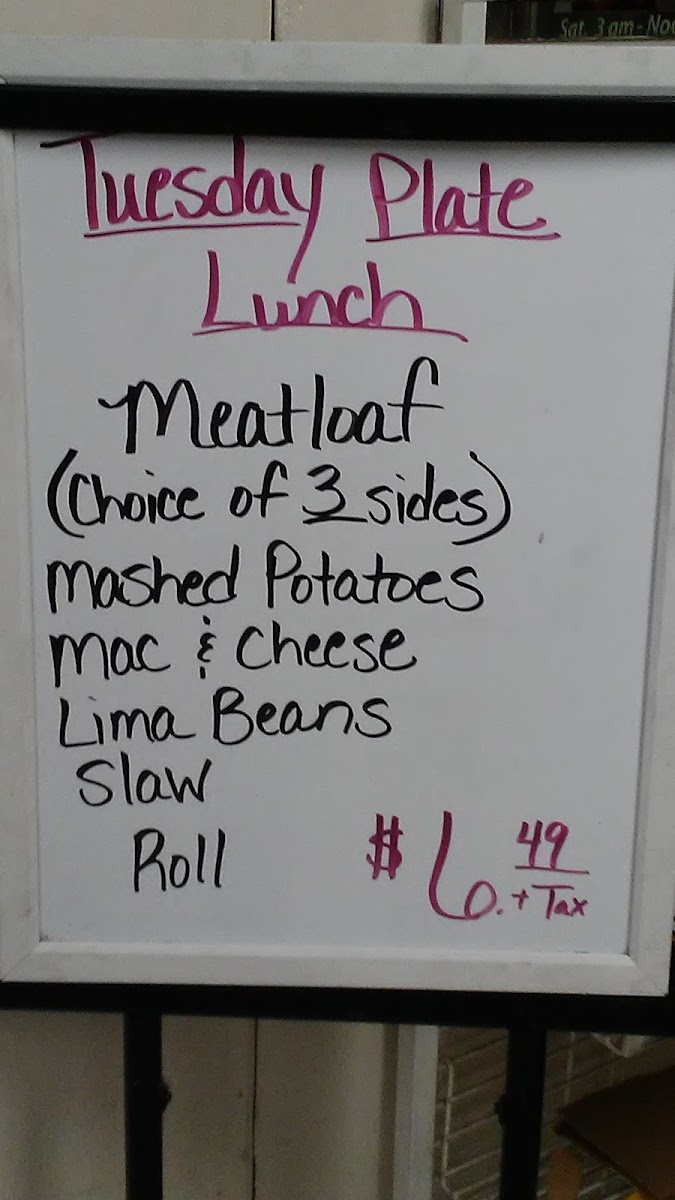 Sat 3am-Noo
Tuesday Plate
Lunch
Meatloaf
(Choice of 3 sides)
Mashed Potatoes
Mac & Cheese
Lima Beans
Slaw
Roll
$6.49
+ Tax